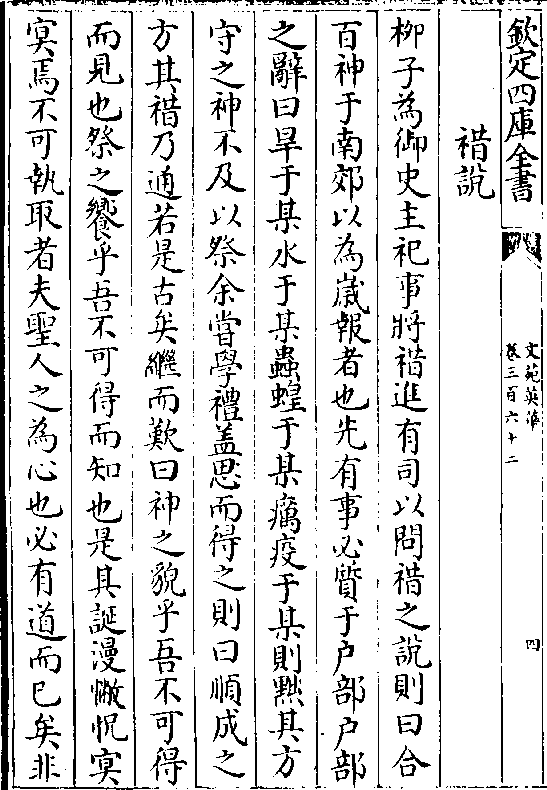 欽定四庫全書
文苑英華
卷三百六十二
四
䄍說
柳子為御史主祀事將䄍進有司以問䄍之說則曰合
百神于南郊以為歲報者也先有事必質于户部户部
之辭曰旱于某水于某蟲蝗于某癘疫于某則黜其方
守之神不及以祭余嘗學禮盖思而得之則曰順成之
方其䄍乃通若是古矣繼而歎曰神之貌乎吾不可得
而見也祭之饗乎吾不可得而知也是其誕漫惝怳冥
冥焉不可執取者夫聖人之為心也必有道而已矣非